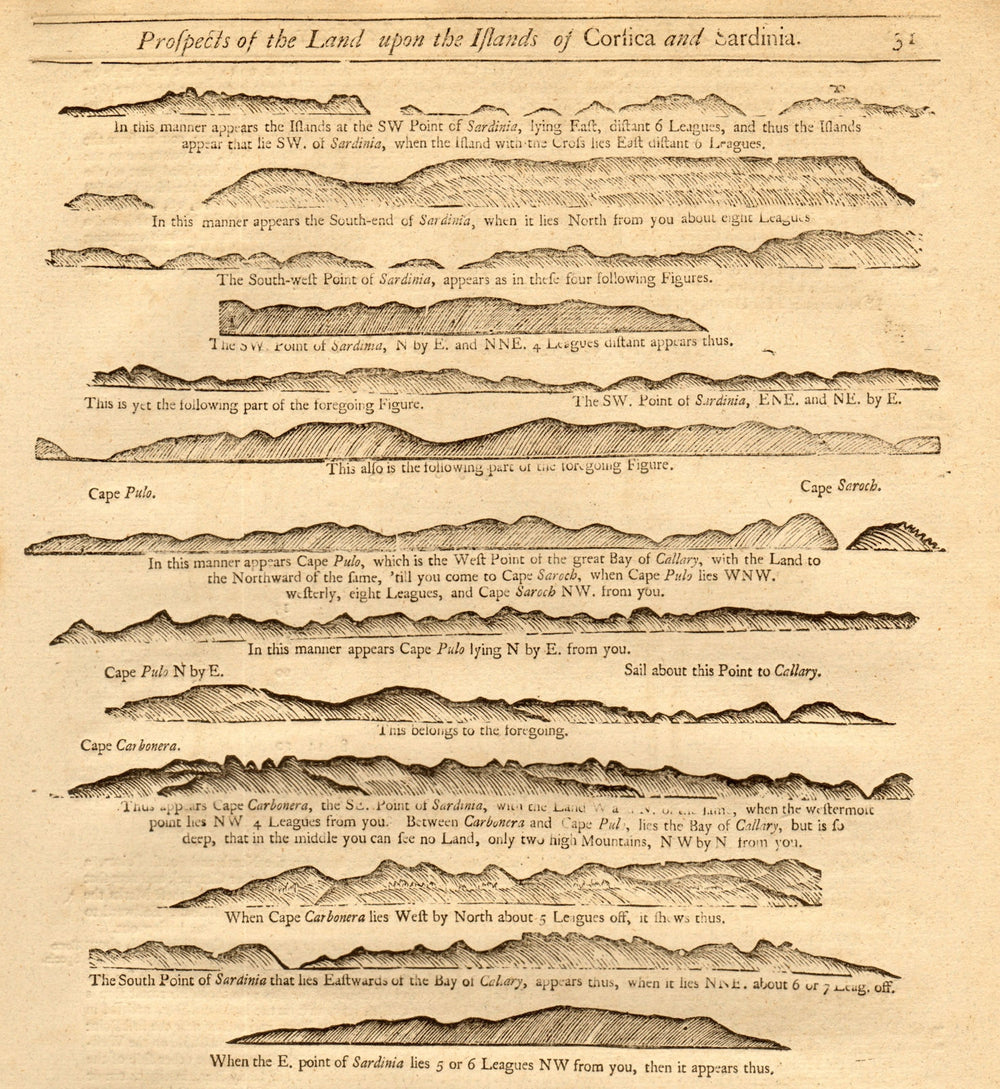 Proſpects of the Land upon the Iſlands of Corſica and Sardinia. 31
In this manner appears the Iſlands at the SW Point of Sardinia, lying Eaſt, diſtant 6 Leagues, and thus the Iſlands
appear that lie SW. of Sardinia, when the Iſland with the Croſs lies Eaſt diſtant 6 Leagues.
In this manner appears the South-end of Sardinia, when it lies North from you about eight Leagues
The South-weſt Point of Sardinia, appears as in theſe four following Figures.
The SW. Point of Sardinia, N by E. and NNE. 4 Leagues diſtant appears thus.
This is yet the following part of the foregoing Figure. The SW. Point of Sardinia, ENE. and NE. by E.
This alſo is the following part of the foregoing Figure.
Cape Pulo. Cape Saroch.
In this manner appears Cape Pulo, which is the Weſt Point of the great Bay of Callary, with the Land to
the Northward of the ſame, 'till you come to Cape Saroch, when Cape Pulo lies WNW.
weſterly, eight Leagues, and Cape Saroch NW. from you.
In this manner appears Cape Pulo lying N by E. from you.
Cape Pulo N by E. Sail about this Point to Callary.
This belongs to the foregoing.
Cape Carbonera.
Thus appears Cape Carbonera, the SE. Point of Sardinia, with the Land W and N. of the ſame, when the weſtermoſt
point lies NW 4 Leagues from you. Between Carbonera and Cape Pulo, lies the Bay of Callary, but is ſo
deep, that in the middle you can ſee no Land, only two high Mountains, NW by N from you.
When Cape Carbonera lies Weſt by North about 5 Leagues off, it ſhews thus.
The South Point of Sardinia that lies Eaſtwards of the Bay of Callary, appears thus, when it lies NNE. about 6 or 7 Leag. off.
When the E. point of Sardinia lies 5 or 6 Leagues NW from you, then it appears thus.